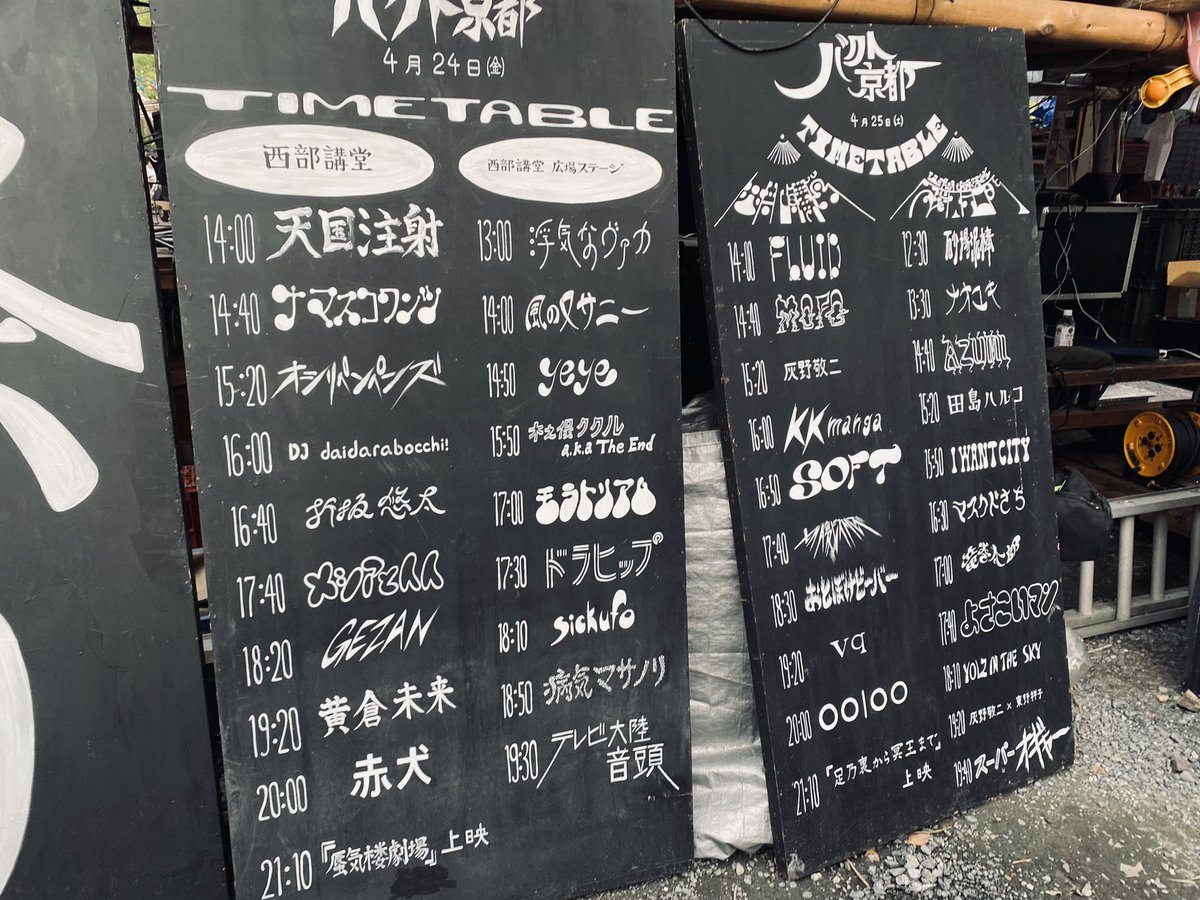 バクト京都
4月24日(金)
TIMETABLE
西部講堂
14:00 天国注射
14:40 ナマスコワジツ
15:20 オシリペンペンズ
16:00 DJ daidarabocchi!
16:40 折坂悠太
17:40 メシアと人人
18:20 GEZAN
19:20 黄倉未来
20:00 赤犬
21:10 『蜃気楼劇場』上映
西部講堂 広場ステージ
13:00 浮気なヴァカ
14:00 風の又サニー
14:50 yeye
15:50 木之俣ククル
a.k.a The End
17:00 モラトリアム
17:30 ドラヒップ
18:10 sickufo
18:50 病気マサノリ
19:30 テレビ大陸
音頭
バクト京都
4月25日(土)
TIMETABLE
西部講堂
14:00 FLUID
14:40 MOFO
15:20 灰野敬二
16:00 KK manga
16:50 SOFT
17:40
18:30 おとぼけビ〜バ〜
19:20 vq
20:00 OOIOO
21:10 『足乃裏から冥王まで』
上映
12:30
13:30
14:40 AZUMI
15:20 田島ハルコ
15:50 I WANT CITY
16:30 マスクドさち
17:00
17:40 よさこいマン
18:10 YOLZ IN THE SKY
19:20 灰野敬二×東野祥子
19:40 スーパー